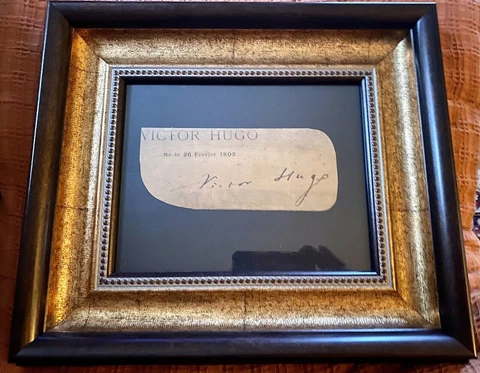 VICTOR HUGO
Né le 26 Février 1802
Victor Hugo